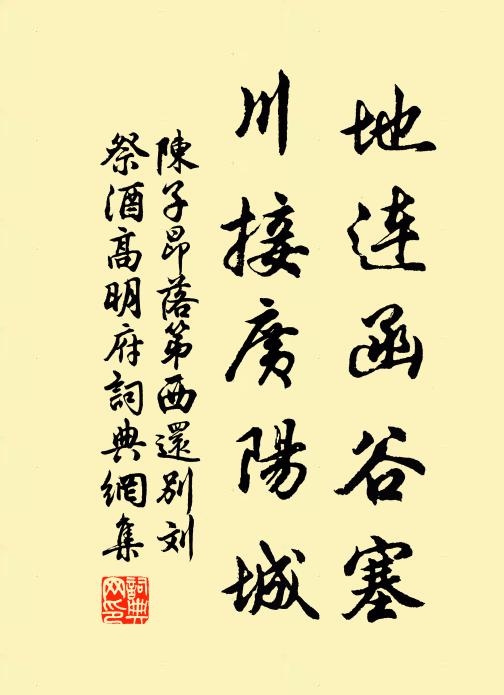 地连函谷塞
川接广陽城
陳子昂落第西還别刘
祭酒高明府詞典網集
詞典网印